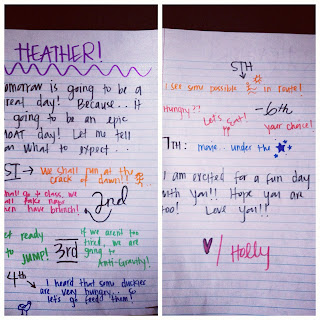 HEATHER!
omorrow is going to be a
real day! Because.. it
going to be an epic
day! Let me tell
on what to expect..
1ST → We shall run at the
crack of dawn!!
shall go to class, we
all fake naps
hen have brunch!
2nd
et ready
to JUMP!
3rd
if we aren't too
tired, we are
going to
Anti-Gravity!
4th
I heard that some duckies
are very hungry.. so
let's go feed them!
5TH
I see some possible in route!
Hungry??
Let's eat!
-6th
your choice!
7TH: movie.. under the
I am excited for a fun day
with you!! Hope you are
too! Love you!!
/ Holly